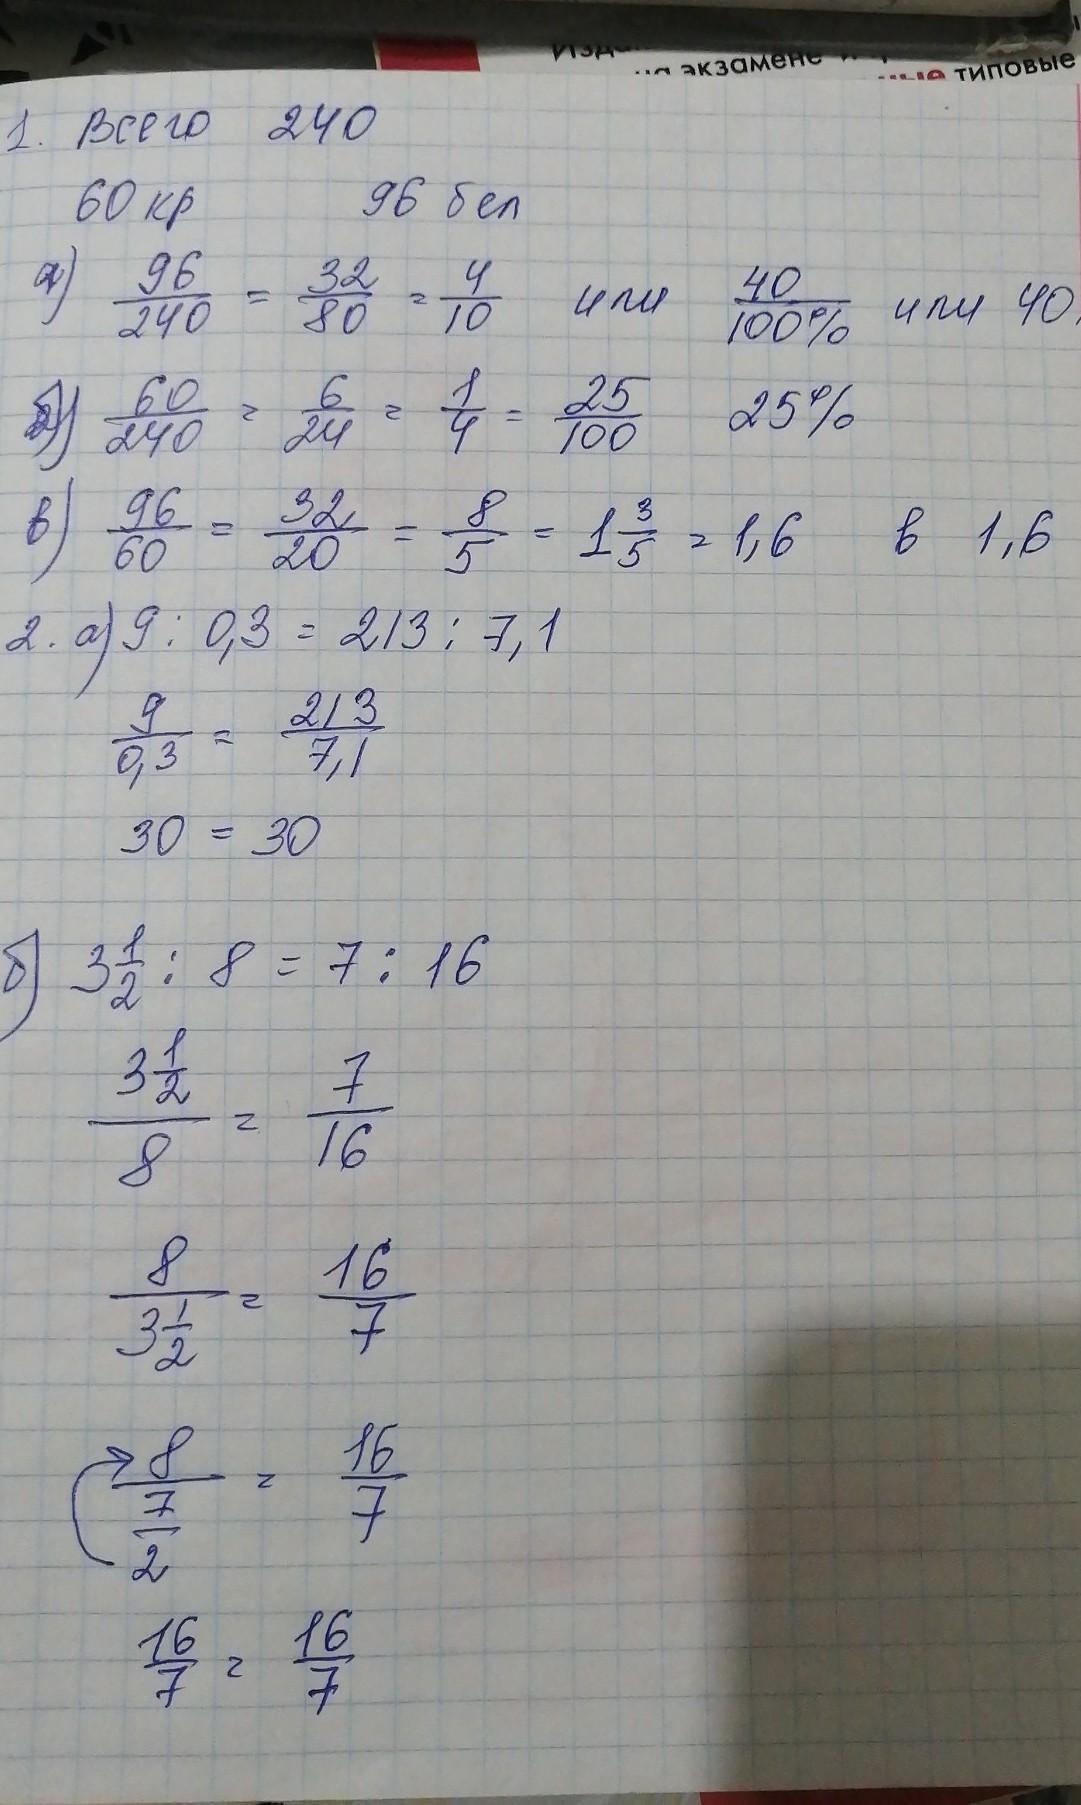 на экзамене и
ные типовые
1. Всего 240
60 кр 96 бел
а) 96/240 = 32/80 = 4/10 или 40/100% или 40
б) 60/240 = 6/24 = 1/4 = 25/100 25%
в) 96/60 = 32/20 = 8/5 = 1 3/5 = 1,6 в 1,6
2. а) 9 : 0,3 = 213 : 7,1
9/0,3 = 213/7,1
30 = 30
б) 3 1/2 : 8 = 7 : 16
3 1/2 / 8 = 7/16
8 / 3 1/2 = 16/7
8 / 7/2 = 16/7
16/7 = 16/7